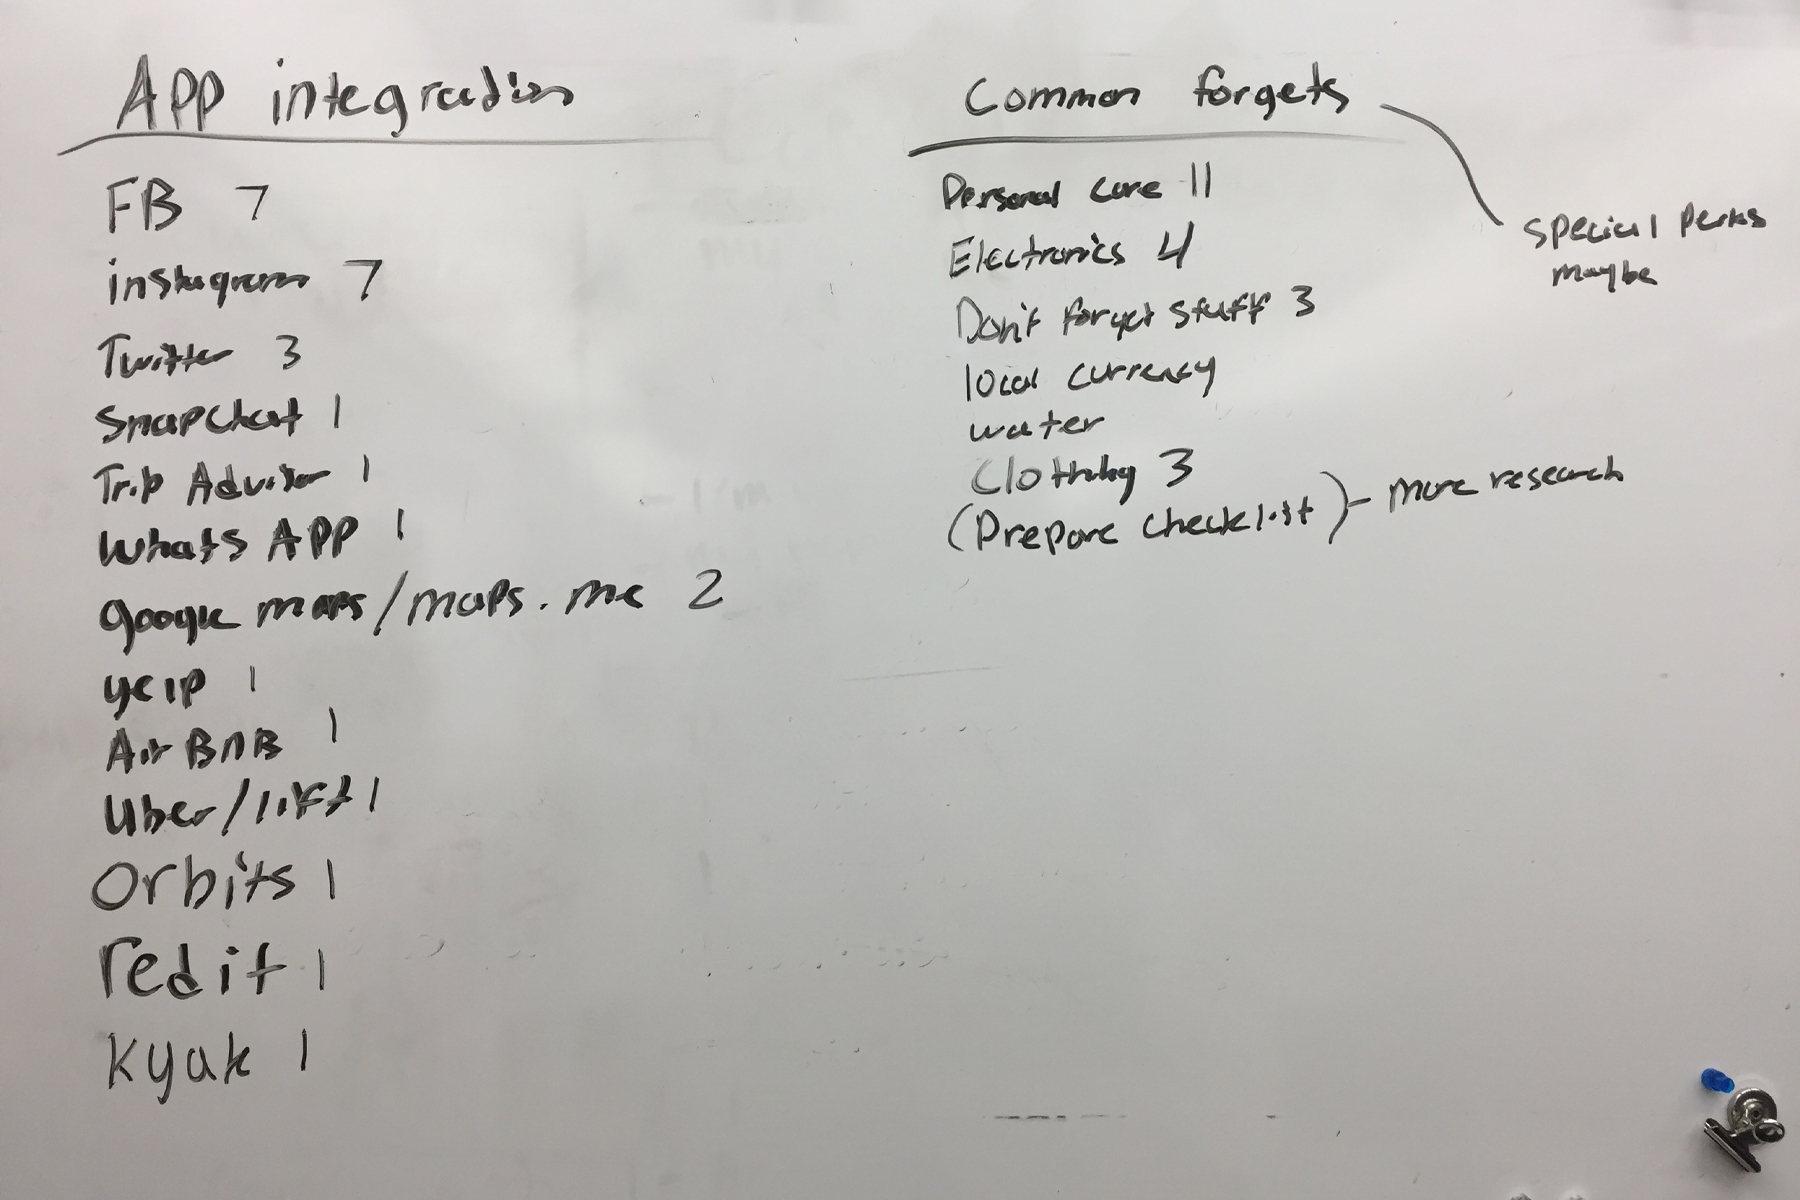 App integration
FB 7
instagram 7
Twitter 3
Snapchat 1
Trip Advisor 1
Whats APP 1
google maps/maps.me 2
yelp 1
Air BnB 1
Uber/lift 1
Orbits 1
redit 1
Kyak 1
Common forgets
special perks
maybe
Personal care 11
Electronics 4
Don't forget stuff 3
local currency
water
Clothing 3
(Prepare checklist) - more research